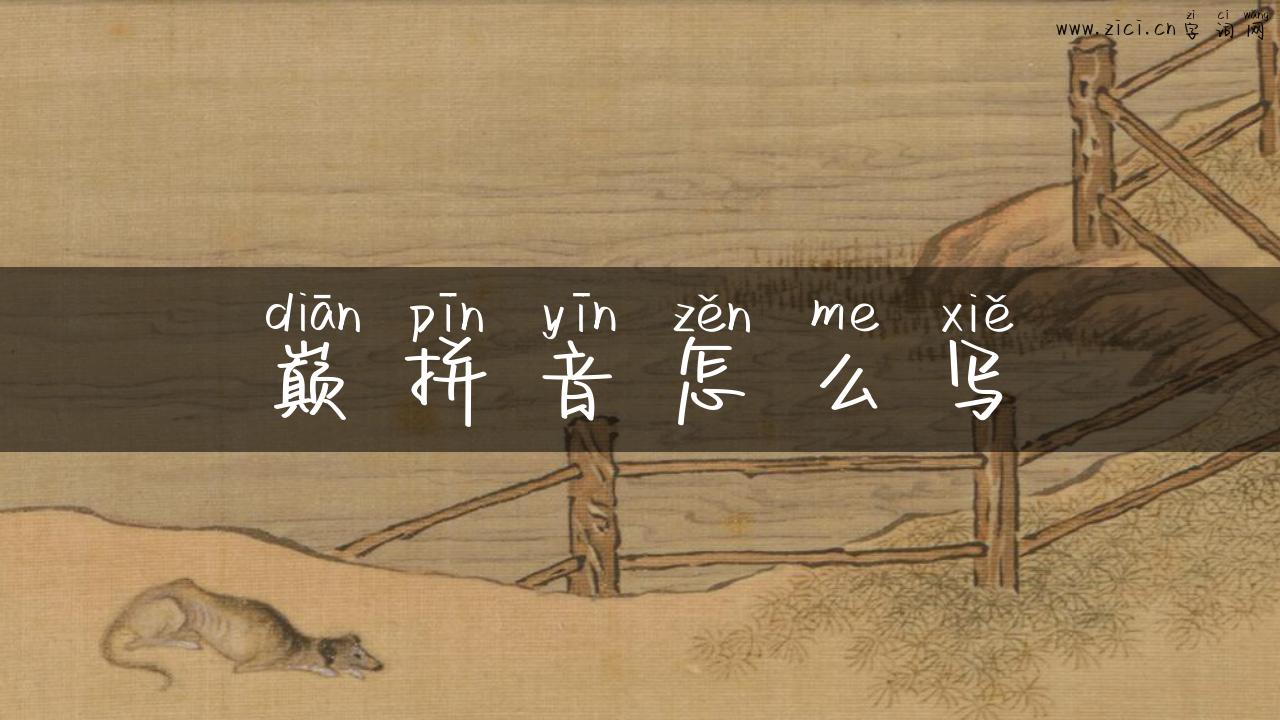 zi ci wang
www.zici.cn 字词网
diān pīn yīn zěn me xiě
巅拼音怎么写